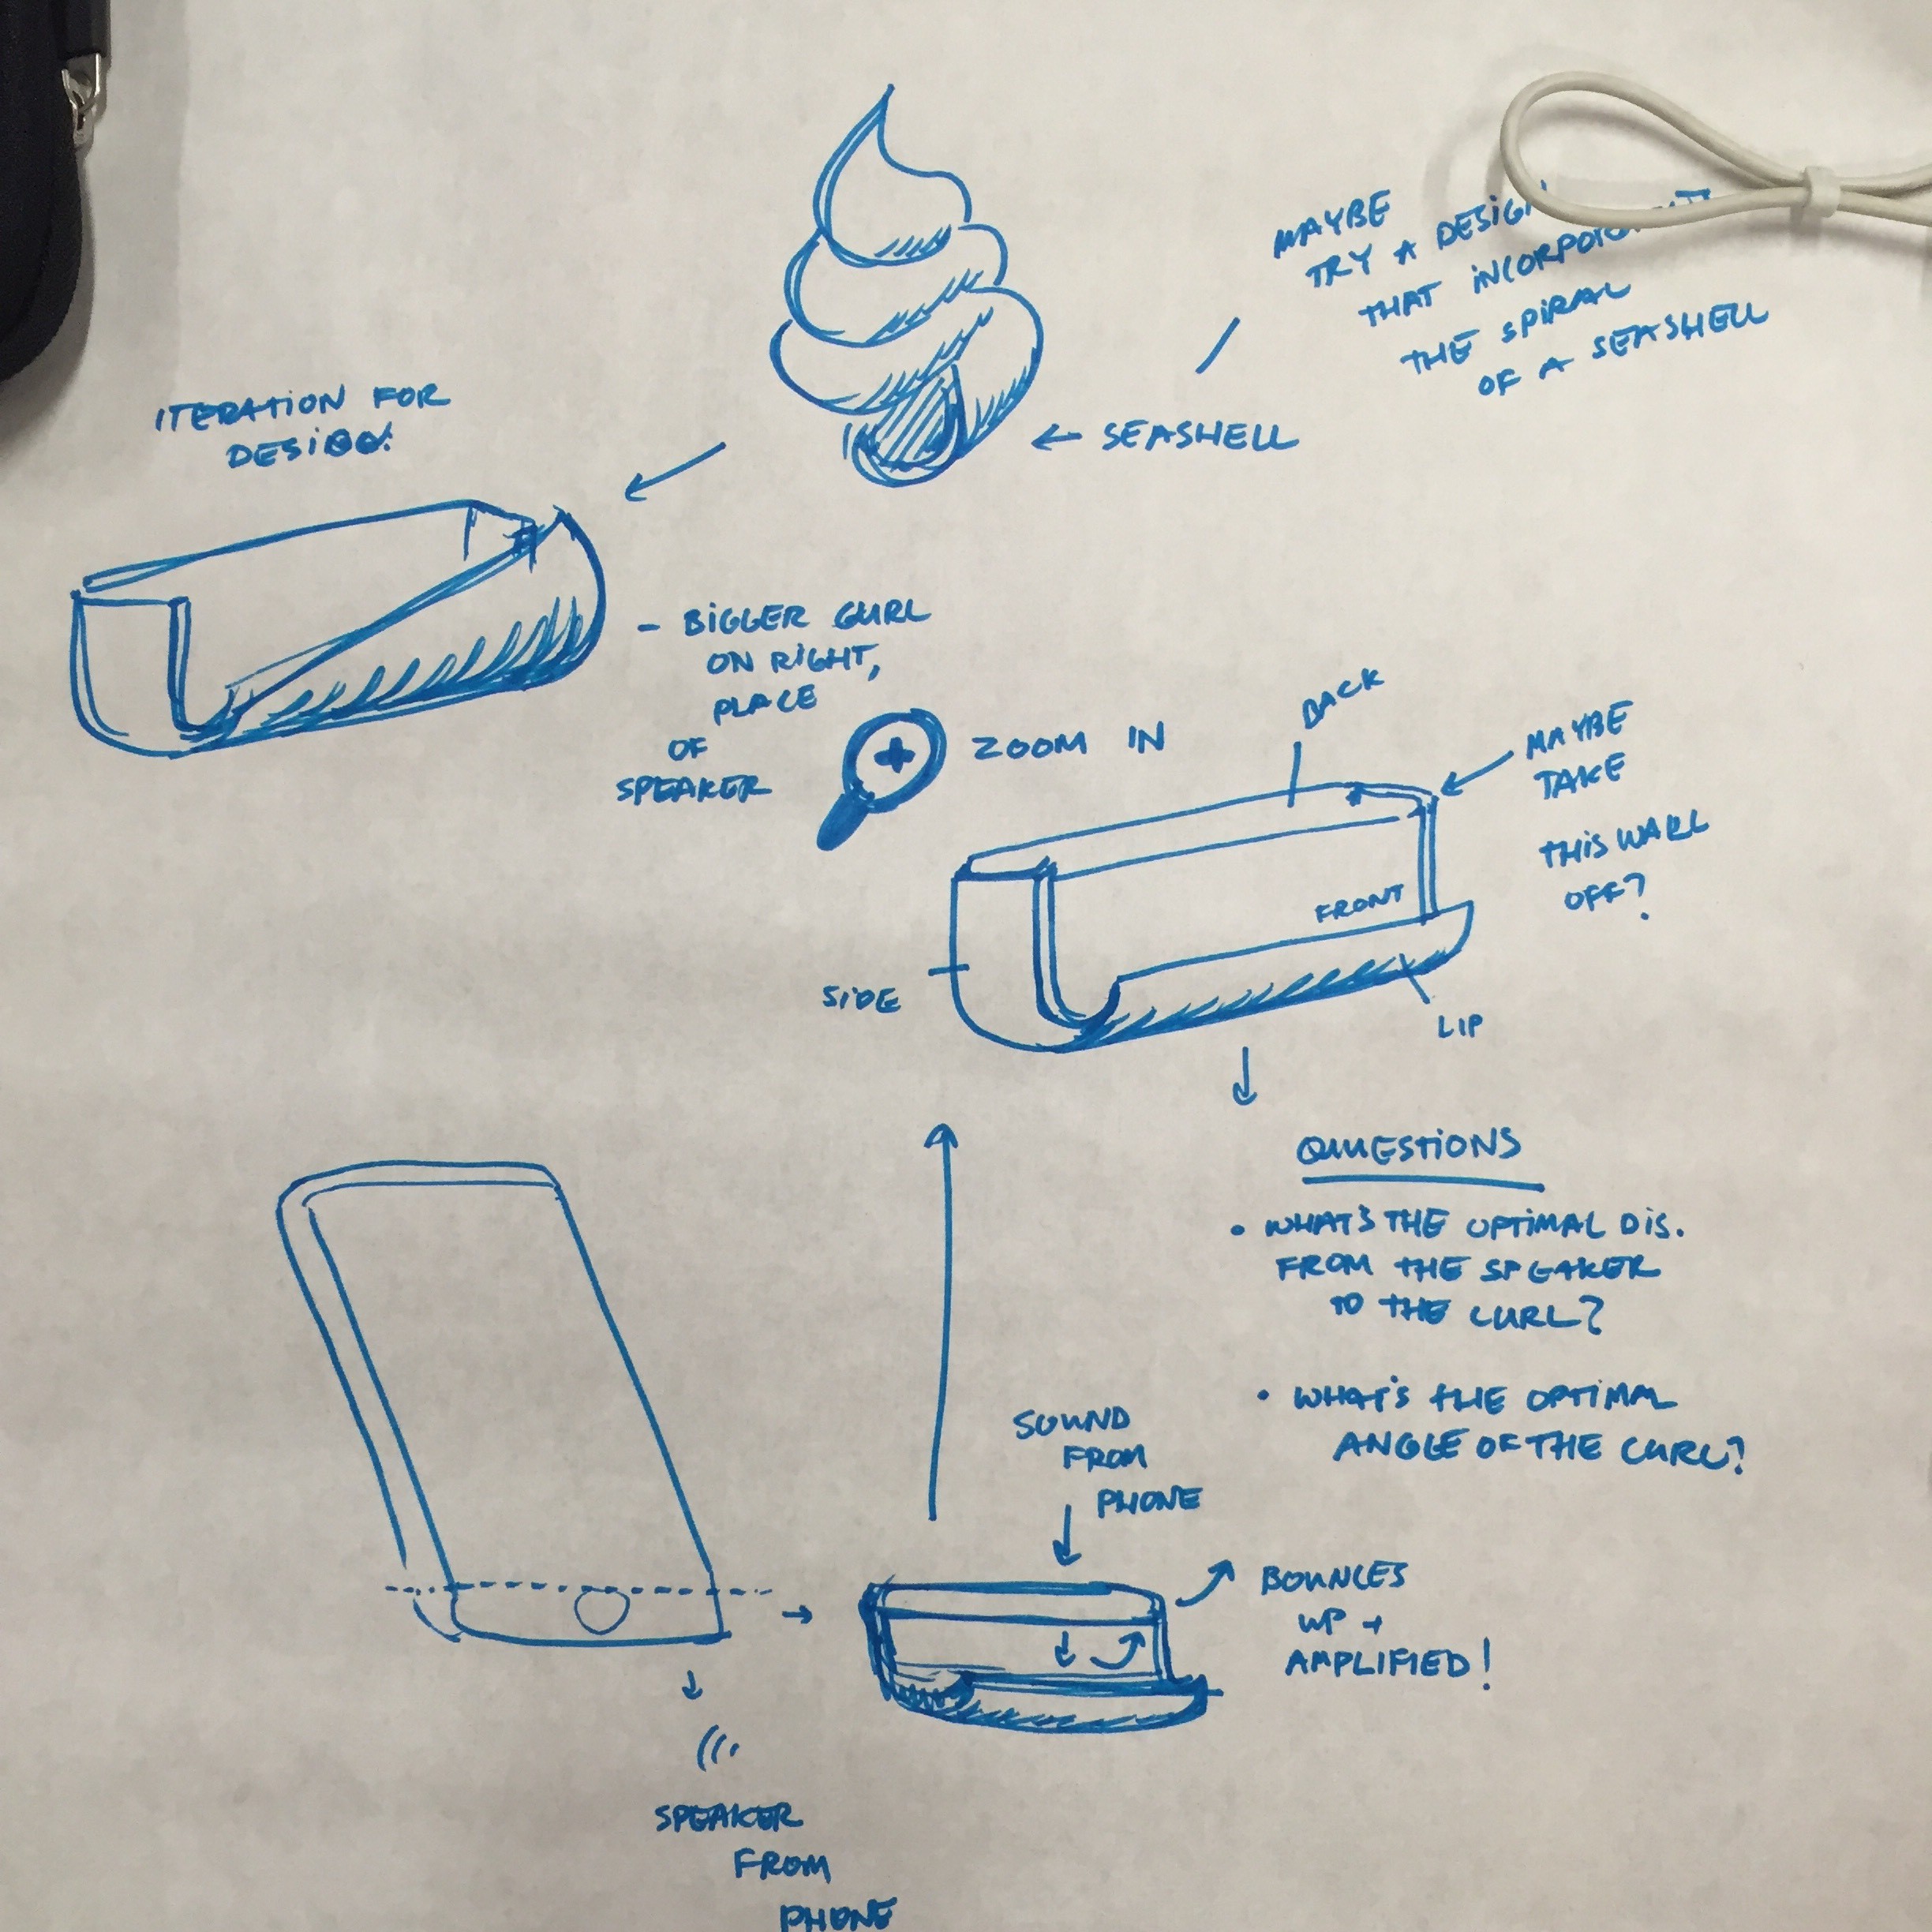 MAYBE
TRY A DESIGN
THAT
THE SPIRAL
OF A SEASHELL
← SEASHELL
ITERATION FOR
DESIGN!
- BIGGER CURL
ON RIGHT,
PLACE
OF
SPEAKER
ZOOM IN
BACK
MAYBE
TAKE
THIS WALL
OFF?
FRONT
SIDE
LIP
QUESTIONS
• WHAT'S THE OPTIMAL DIS.
FROM THE SPEAKER
TO THE CURL?
• WHAT'S THE OPTIMAL
ANGLE OF THE CURL?
SOUND
FROM
PHONE
BOUNCES
UP +
AMPLIFIED!
SPEAKER
FROM
PHONE